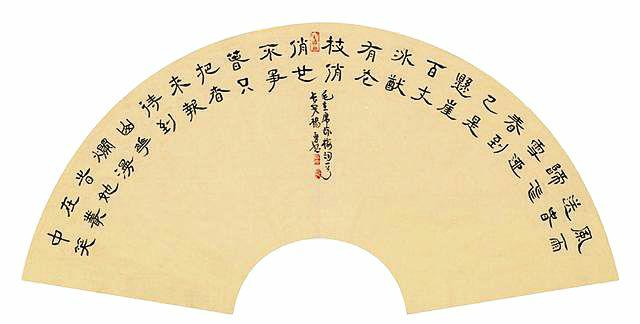 風雨
送春
歸飛
雪迎
春到
已是
懸崖
百丈
冰猶
有花
枝俏
俏也
不爭
春只
把春
來報
待到
山花
爛漫
時她
在叢
中笑
毛主席咏梅詞一首
長安楊